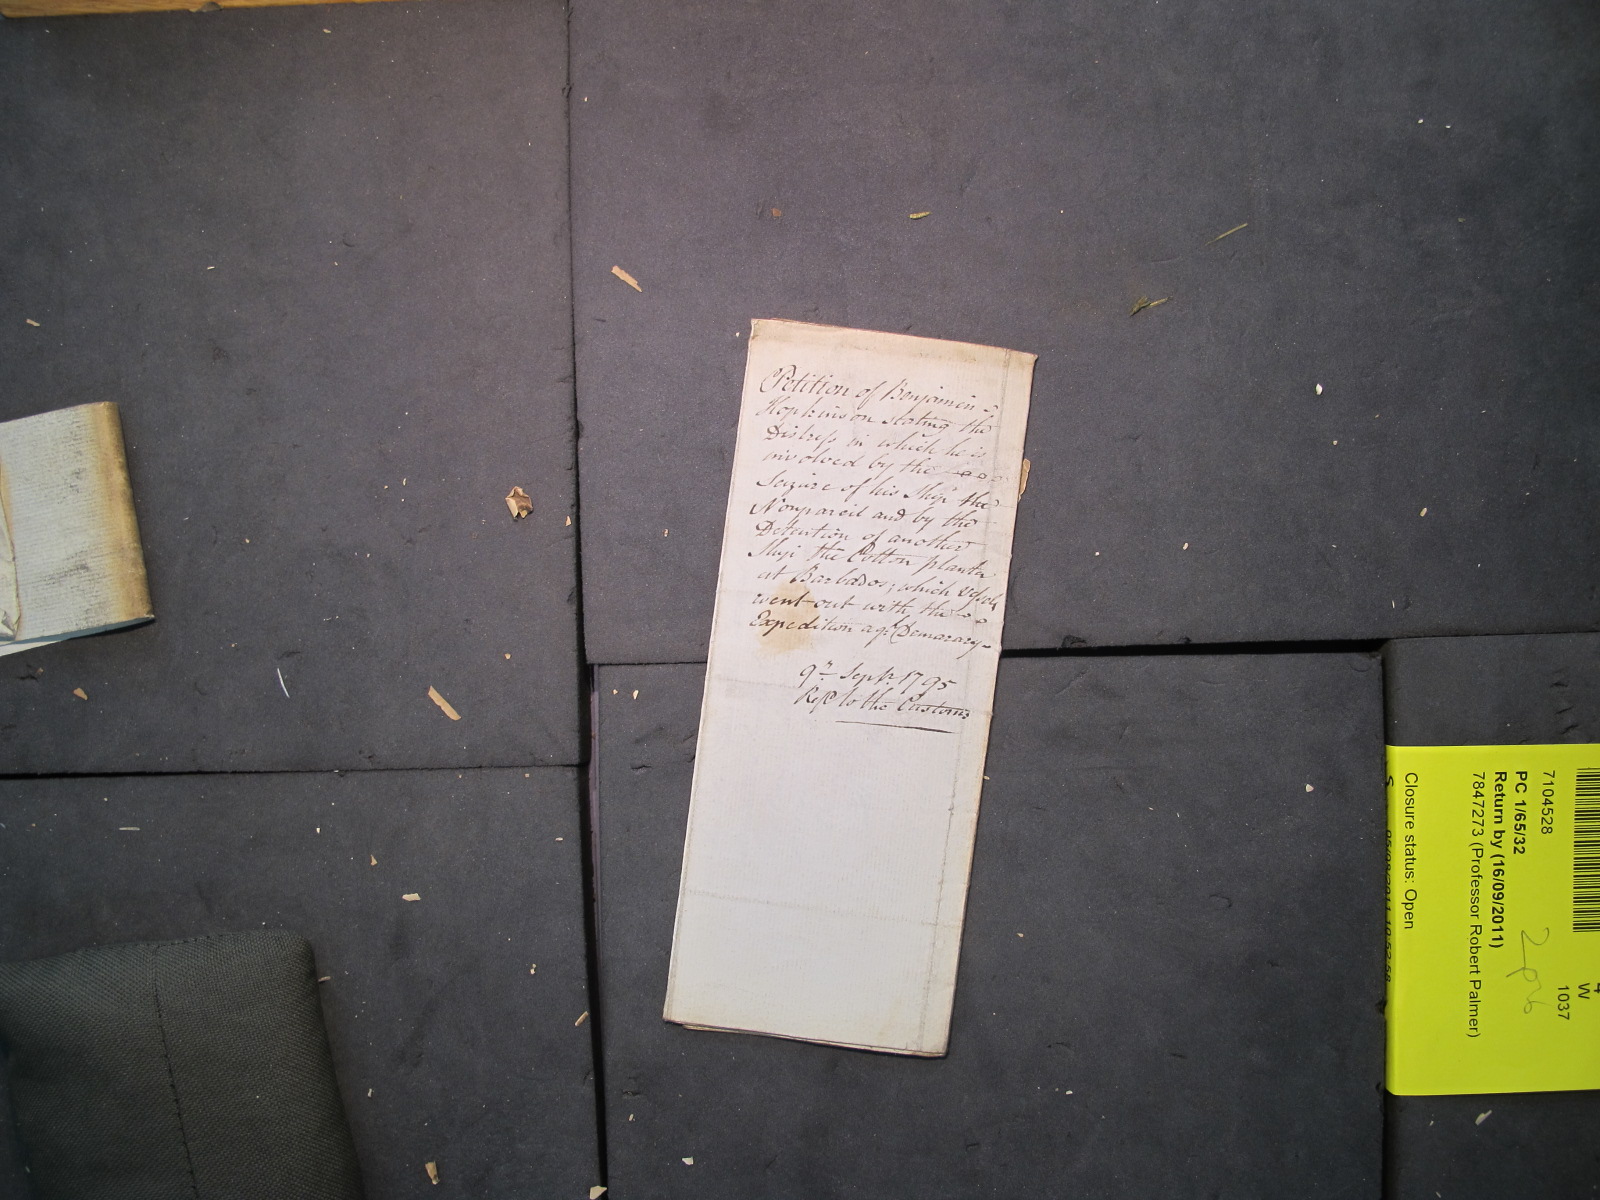 Petition of Benjamin
Hopkinson stating the
Distress in which he is
involved by the
Seizure of his Ship the
Nonpareil and by the
Detention of another
Ship the Cotton planter
at Barbados; which Vessels
went out with the
Expedition agt. Demarary.
9th Septr. 1795
Refd to the Customs
7104528
PC 1/65/32
Return by (16/09/2011)
7847273 (Professor Robert Palmer)
Closure status: Open
4
W
1037